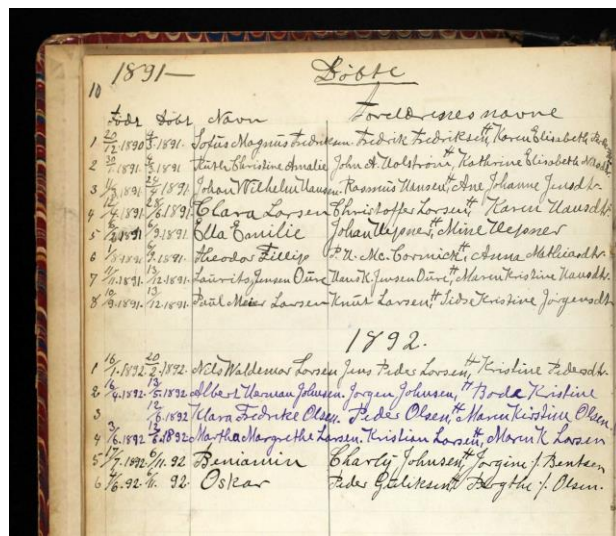 10 1891— Döbte
Född Döbt Navn Foreldrenes navne
1 20/12.1890 1891. Sofus Magnus Fredriksen Fredrik Fredriksen, Karen Elisabeth
2 1891 Ruth Christine Amalie John A. Holström, Kathrine Elisabeth
3 1891. 1891. Johan Wilhelm Hansen Rasmus Hansen, Ane Johanne Jensdtr.
4 1891 1891. Clara Larsen Christoffer Larsen, Karen Hansdtr.
5 1891 1891. Ella Emilie Johan Wepner, Mine Wepner
6 1891. 1891. Theodor Fillip P. H. Mc. Cormick, Anna Mathiasdtr.
7 1891. 13/12.1891. Laurits Jensen Oure Hans K. Jensen Oure, Maren Kristine Hansdtr.
8 1891. 13/12.1891. Paul Meier Larsen Knut Larsen, Sids Kristine Jörgensdtr.
1892.
1 16/1.1892 20/2.1892. Nils Waldemar Larsen Jens Peder Larsen, Kristine Pedersdtr.
2 16/4.1892 13/5.1892 Albert Herman Johnsen. Jorgen Johnsen, Bode Kristine
3 12/6.1892 Klara Fredrike Olsen. Peder Olsen, Maren Kirstine Olsen.
4 3/6.1892 12/6.1892 Martha Margrethe Larsen. Kristian Larsen, Maren K Larsen
5 17/7.1892 6/11.92 Beniamin Charly Johnsen, Jorgine f. Bentsen
6 92. 6/11. 92. Oskar Peder Guliksen f. Olsen.